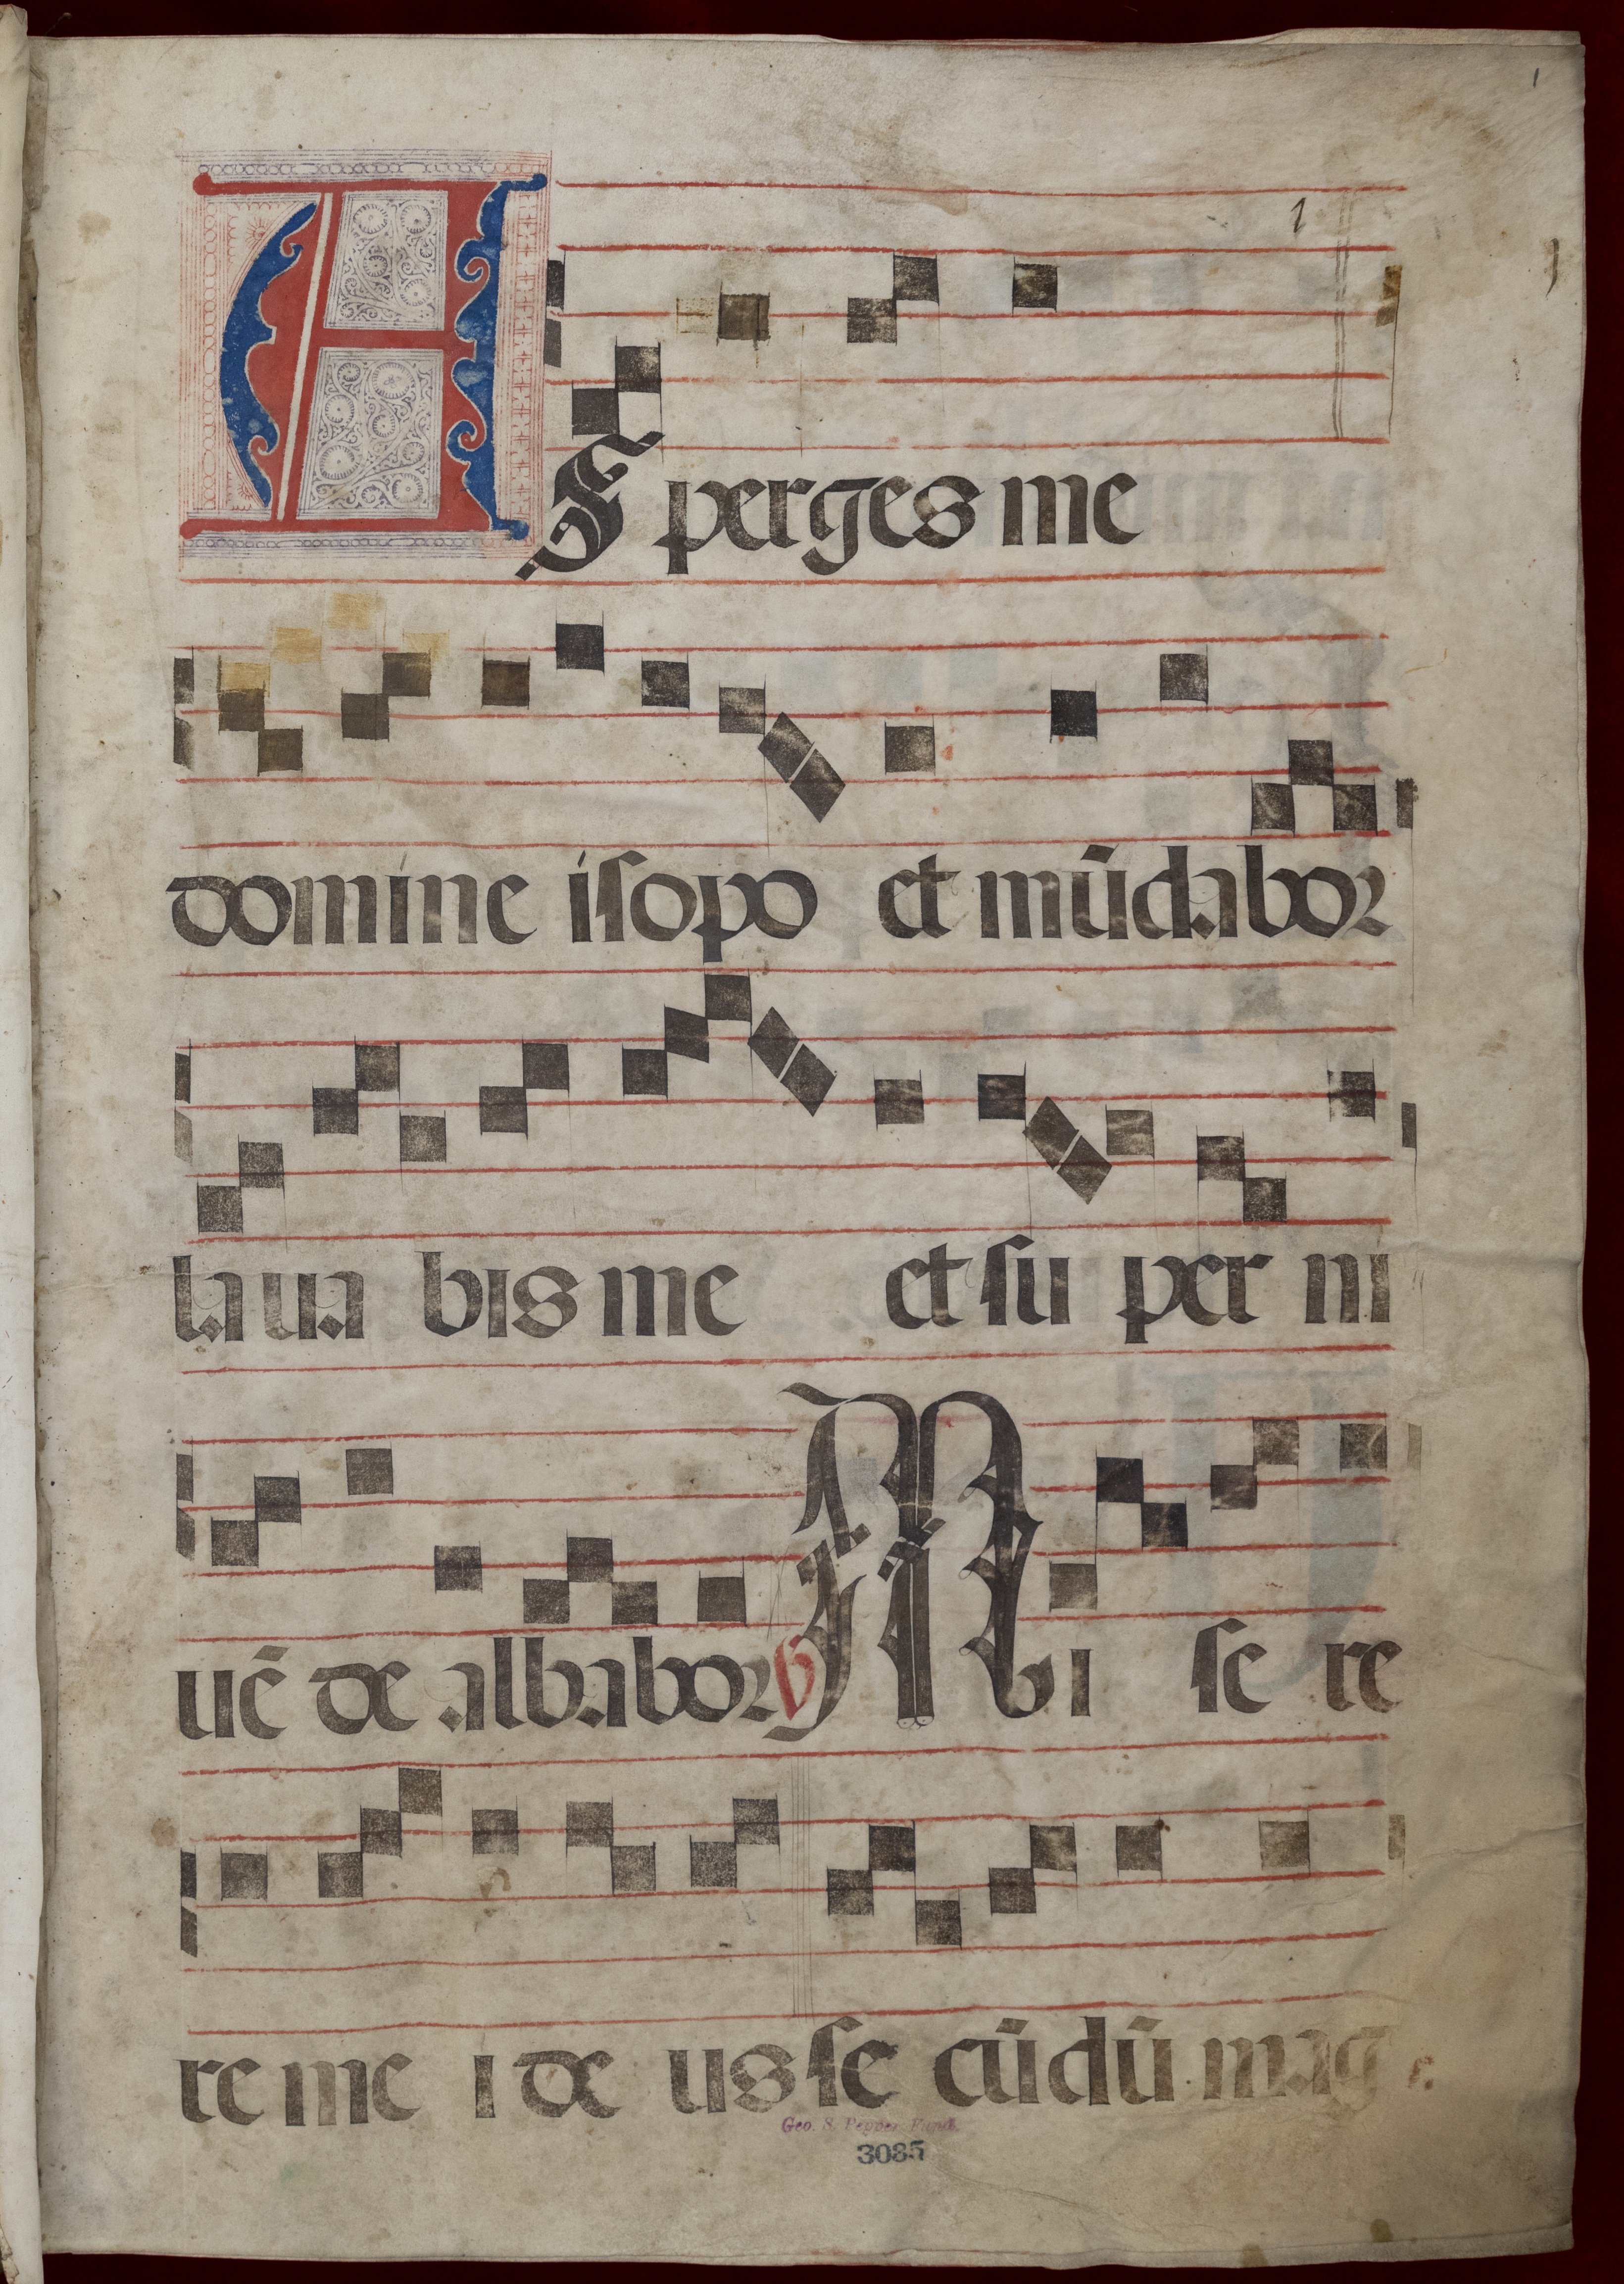 1
1
1
AS perges me
domine isopo et mũdabor
laua bis me et su per ni
uẽ de albabor ℣ Mi se re
re me i de us se cũdũ mag
Geo. S. Pepper Fund.
3085